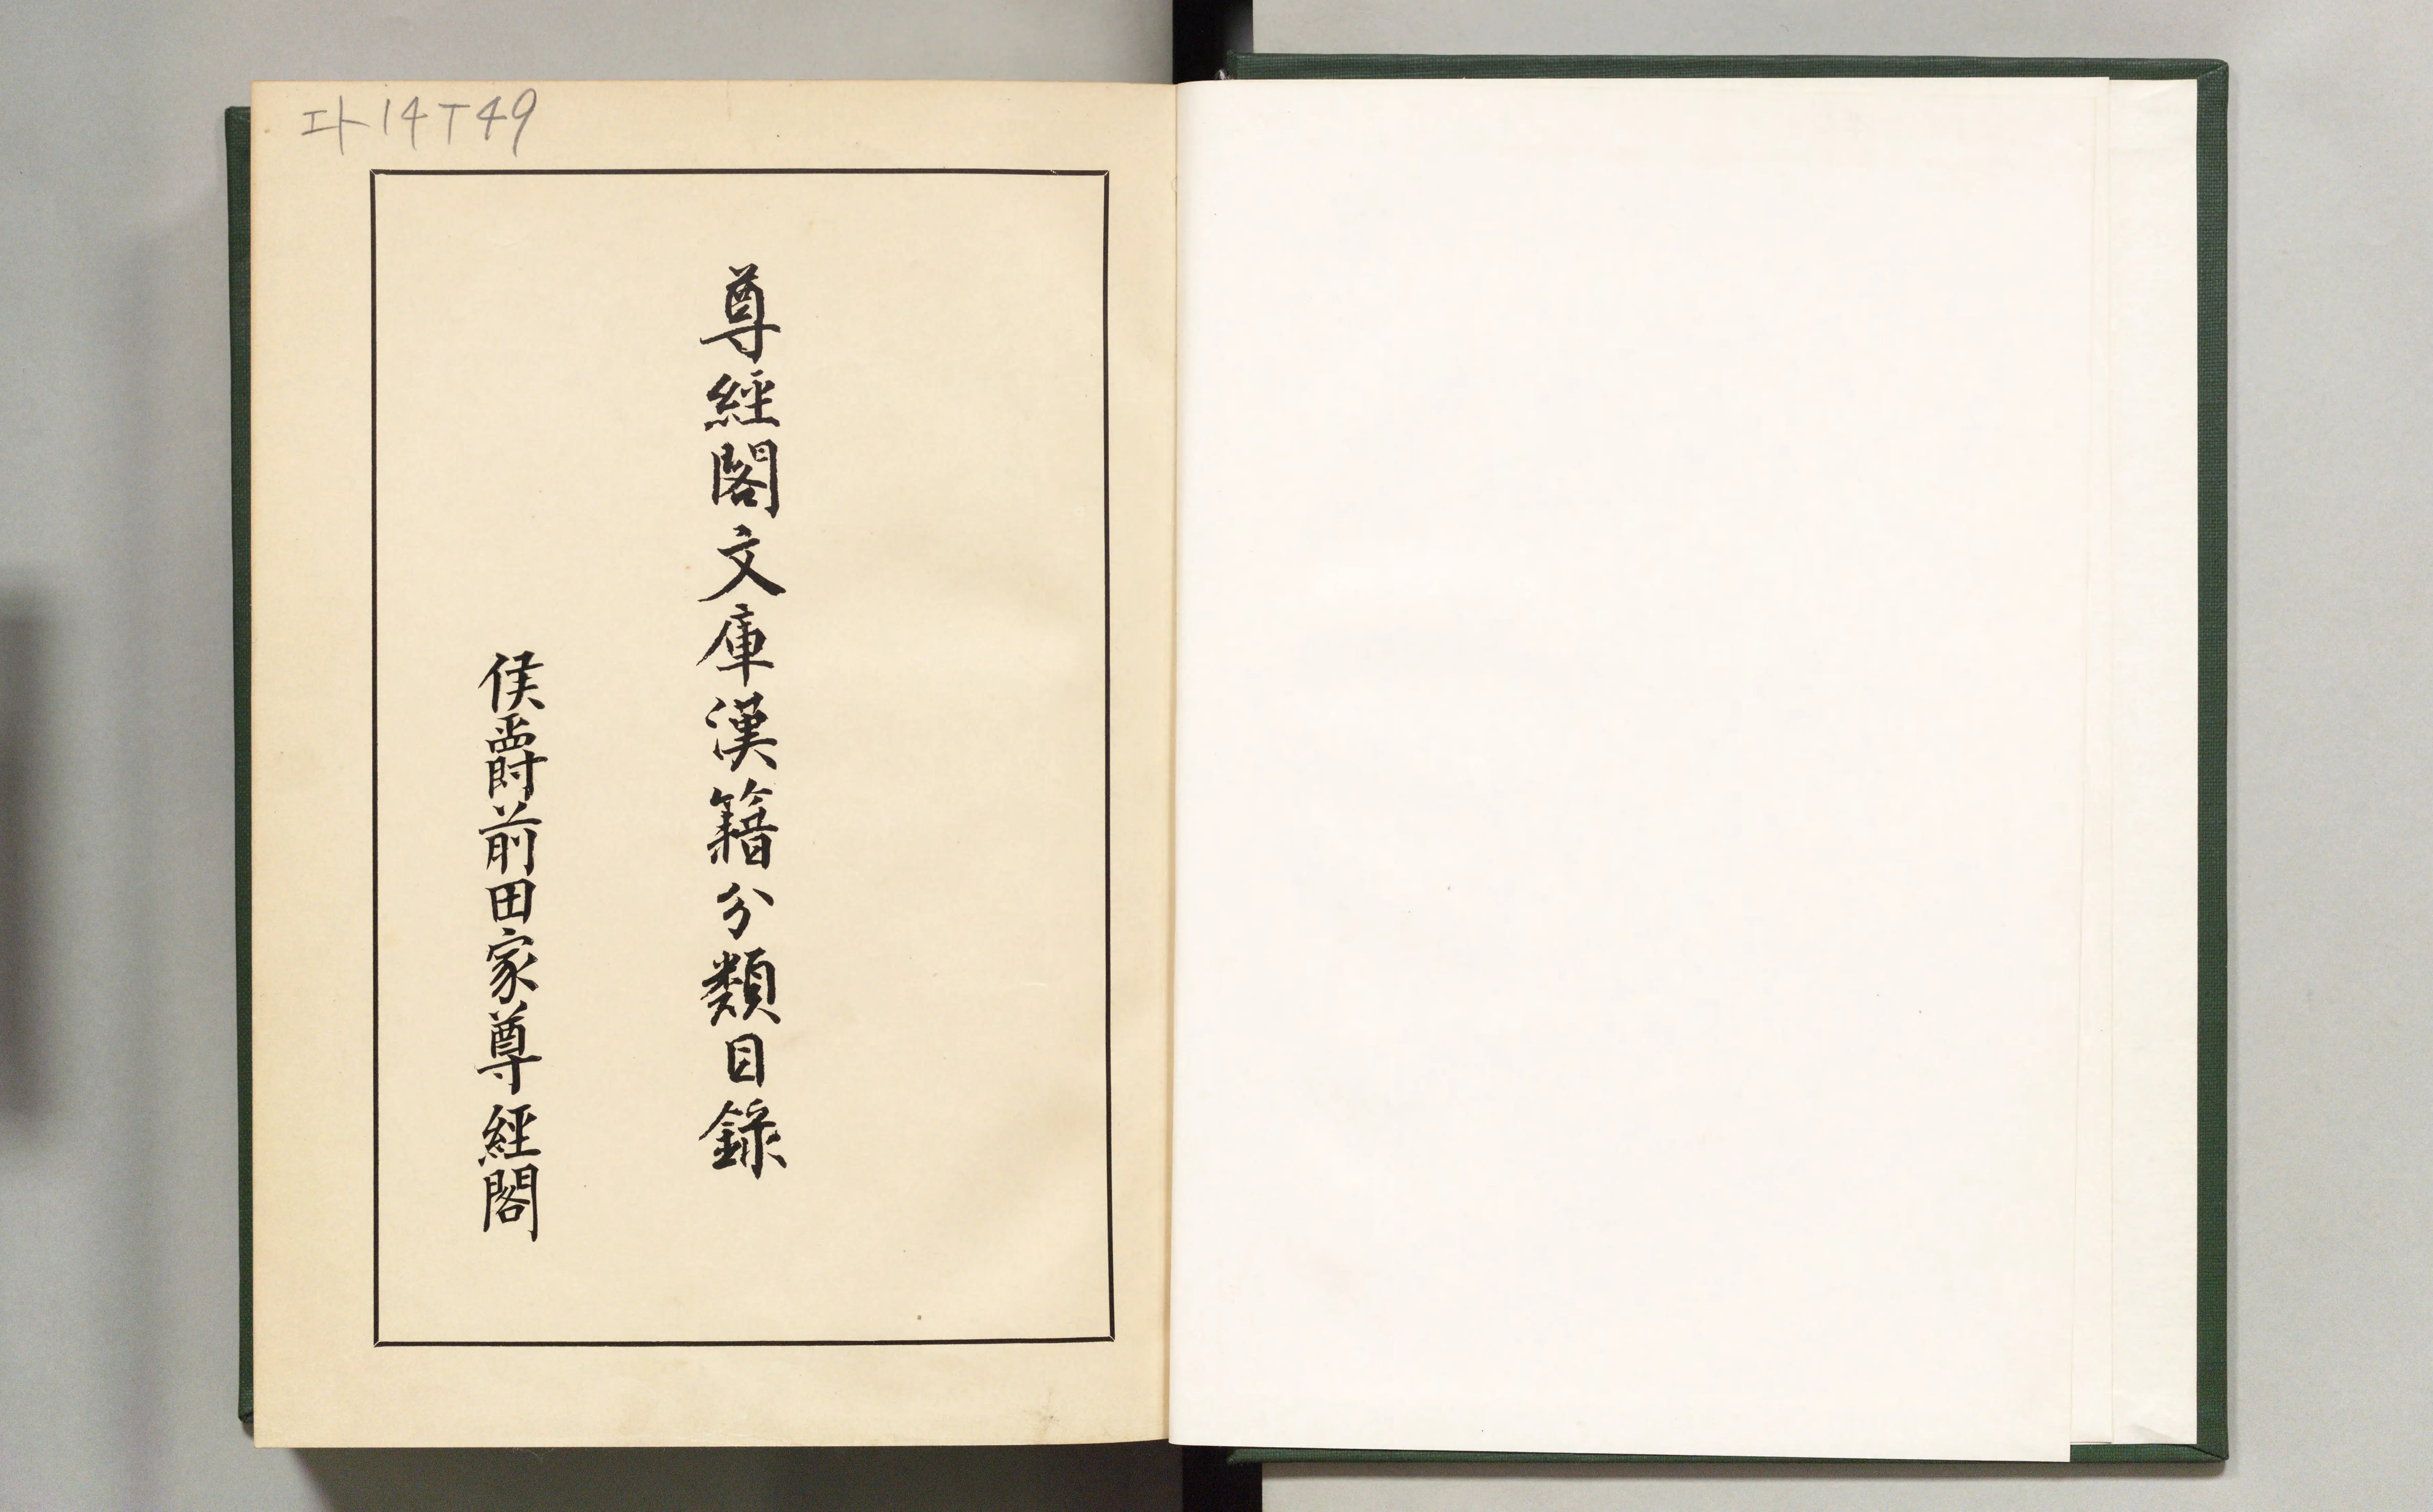 尊經閣文庫漢籍分類目錄
侯爵前田家尊經閣
エト14T49